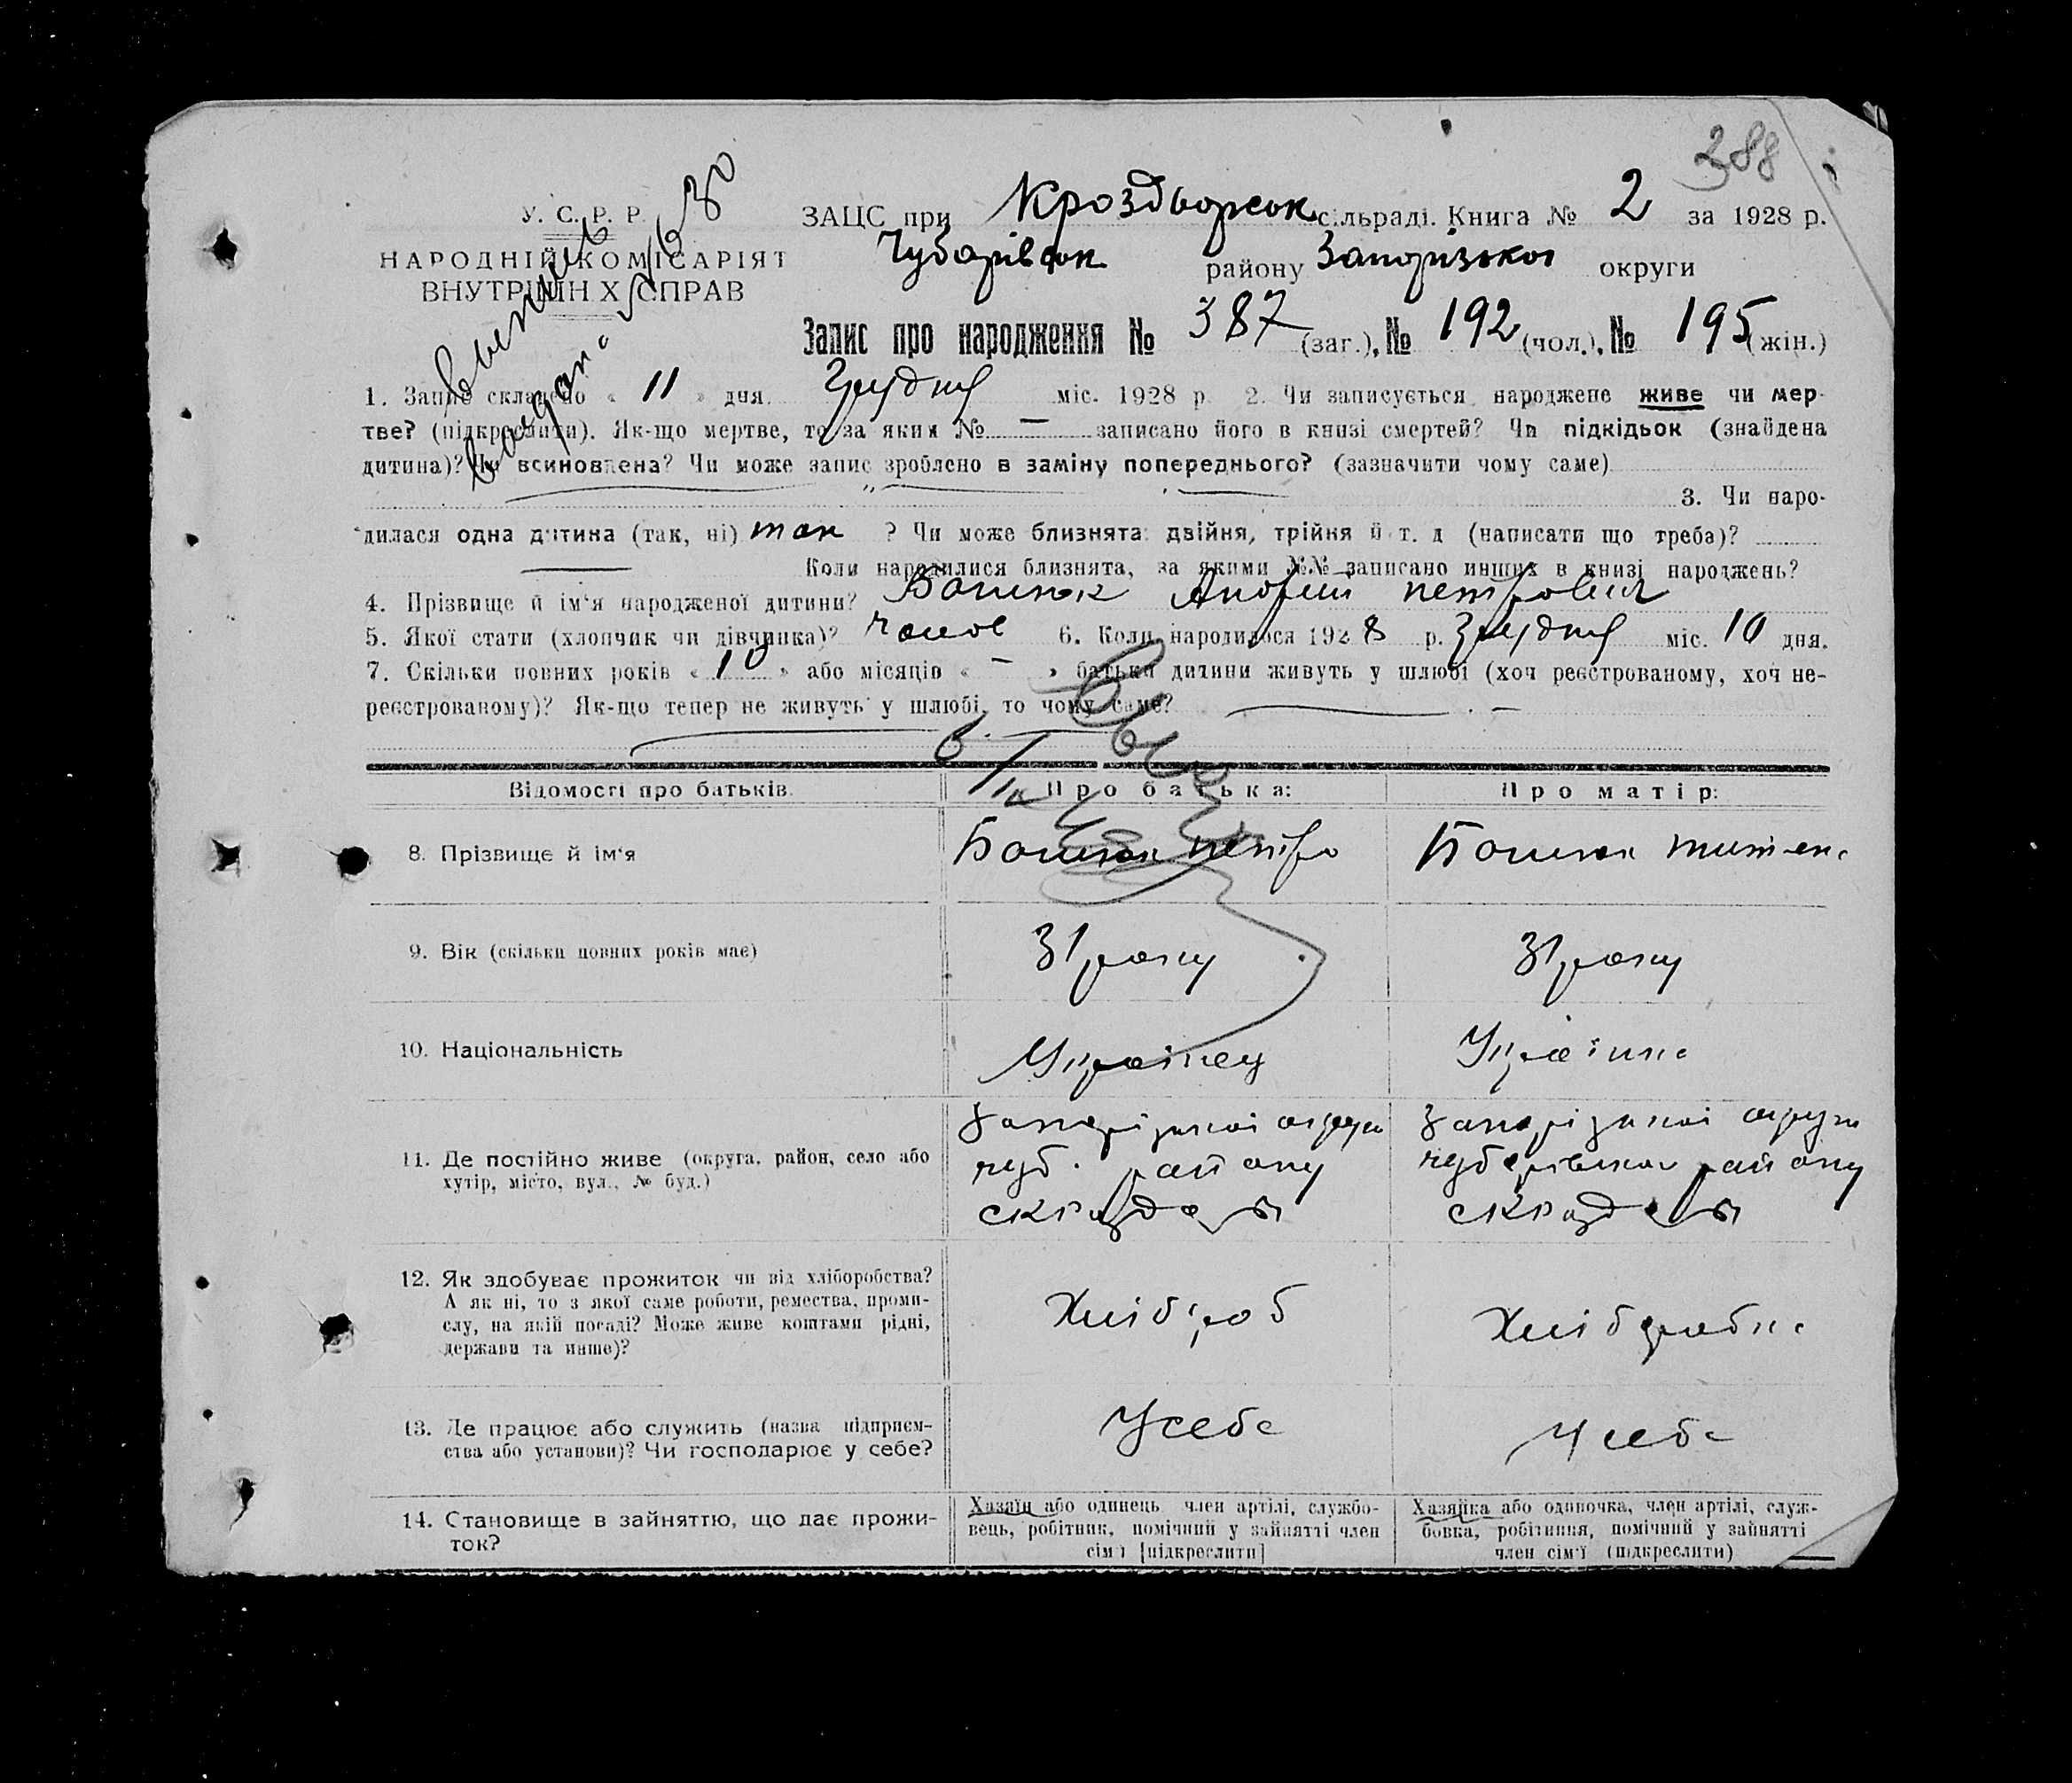 388
У. С. Р. Р.
НАРОДНІЙ КОМІСАРІЯТ
ВНУТРІШН Х СПРАВ
ЗАЦС при Кроздворськ сільраді. Книга № 2 за 1928 р.
Чубарівськ району Запорізької округи
Запис про народження № 387 (заг.), № 192 (чол.), № 195 (жін.)
1. Запис складено « 11 » дня Грудня міс. 1928 р 2. Чи записується народжене живе чи мер-
тве? (підкреслити). Як-що мертве, то за яким № — записано його в книзі смертей? Чи підкідьок (знайдена
дитина)? Чи всиновлена? Чи може запис зроблено в заміну попереднього? (зазначити чому саме)
3. Чи наро-
дилася одна дитина (так, ні) так ? Чи може близнята: двійня, трійня й т. д (написати що треба)?
Коли народилися близнята, за якими №№ записано инших в книзі народжень?
4. Прізвище й ім'я народженої дитини? Андрій Петрович
5. Якої стати (хлопчик чи дівчинка)? 6. Коли народилося 1928 р. Грудня міс. 10 дня.
7. Скільки повних років « 10 » або місяців « — » батьки дитини живуть у шлюбі (хоч реєстрованому, хоч не-
реєстрованому)? Як-що тепер не живуть у шлюбі, то чому саме?
Відомості про батьків. Про батька: Про матір:
8. Прізвище й ім'я Петро
9. Вік (скільки повних років має) 31 року 31 року
10. Національність Українец Українка
11. Де постійно живе (округа, район, село або
хутір, місто, вул., № буд.)
Запорізької округи Запорізької округи
чуб. району чубарівської району
12. Як здобуває прожиток чи від хліборобства?
А як ні, то з якої саме роботи, ремества, проми-
слу, на якій посаді? Може живе коштами рідні,
держави та инше)?
Хлібороб Хлібдробка
13. Де працює або служить (назва підприєм-
ства або установи)? Чи господарює у себе?
У себе У себе
14. Становище в зайняттю, що дає прожи-
ток?
Хазяїн або одинець член артілі, службо-
вець, робітник, помічний у зайнятті член
сім'ї [підкреслити]
Хазяйка або одиночка, член артілі, служ-
бовка, робітниця, помічний у зайнятті
член сім'ї (підкреслити)